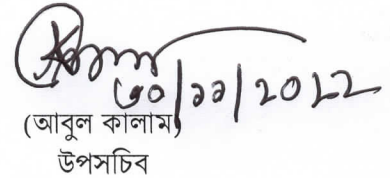 ৩০/১১/২০২২
(আবুল কালাম)
উপসচিব